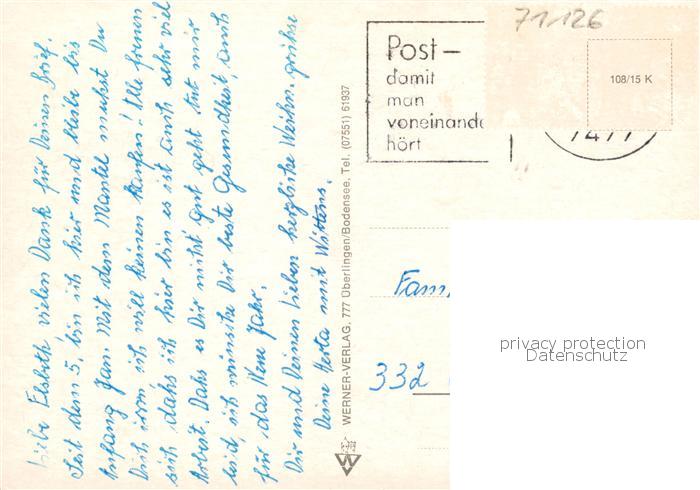 Liebe Elsbeth vielen Dank für Deinen Brief.
Seit dem 5. bin ich hier und bleibe bis
Anfang Jan. Mit dem Mantel machst Du
Dich irren ich will keinen kaufen! Alle freuen
sich daß ich hier bin es ist auch sehr viel
Arbeit. Daß es Dir nicht gut geht tut mir
leid, ich wünsche Dir beste Gesundheit, auch
für das Neue Jahr.
Dir und Deinen Lieben herzliche Weihn. grüße
Deine Herta mit
WERNER-VERLAG, 777 Überlingen/Bodensee, Tel. (07551) 61937
71126
Post-
damit
man
voneinande
hört
108/15 K
Fam.
332
privacy protection
Datenschutz